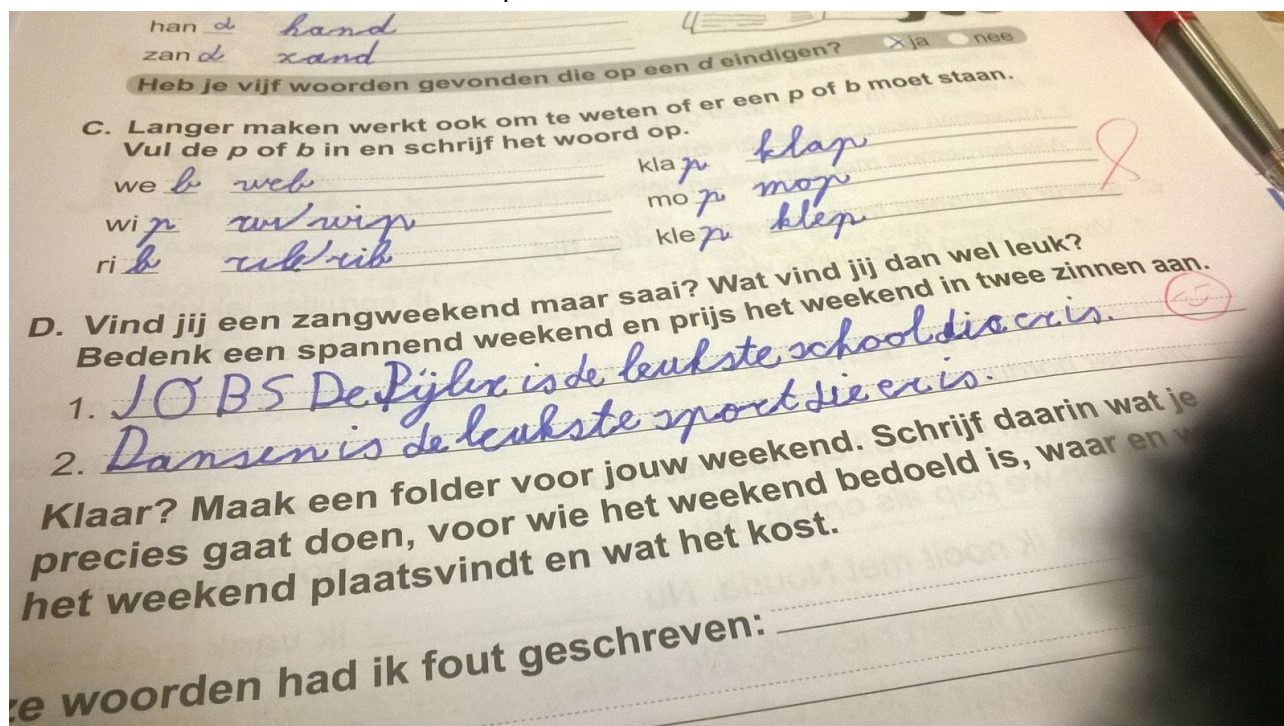 han d hand
zan d zand
Heb je vijf woorden gevonden die op een d eindigen? x ja nee
C. Langer maken werkt ook om te weten of er een p of b moet staan.
Vul de p of b in en schrijf het woord op.
we b web
wi p wip
ri b rib
kla p klap
mo p mop
kle p klep
8
D. Vind jij een zangweekend maar saai? Wat vind jij dan wel leuk?
Bedenk een spannend weekend en prijs het weekend in twee zinnen aan.
1. JOBS De Pijler is de leukste school die er is.
2. Dansen is de leukste sport die er is.
Klaar? Maak een folder voor jouw weekend. Schrijf daarin wat je
precies gaat doen, voor wie het weekend bedoeld is, waar en w
het weekend plaatsvindt en wat het kost.
ze woorden had ik fout geschreven: